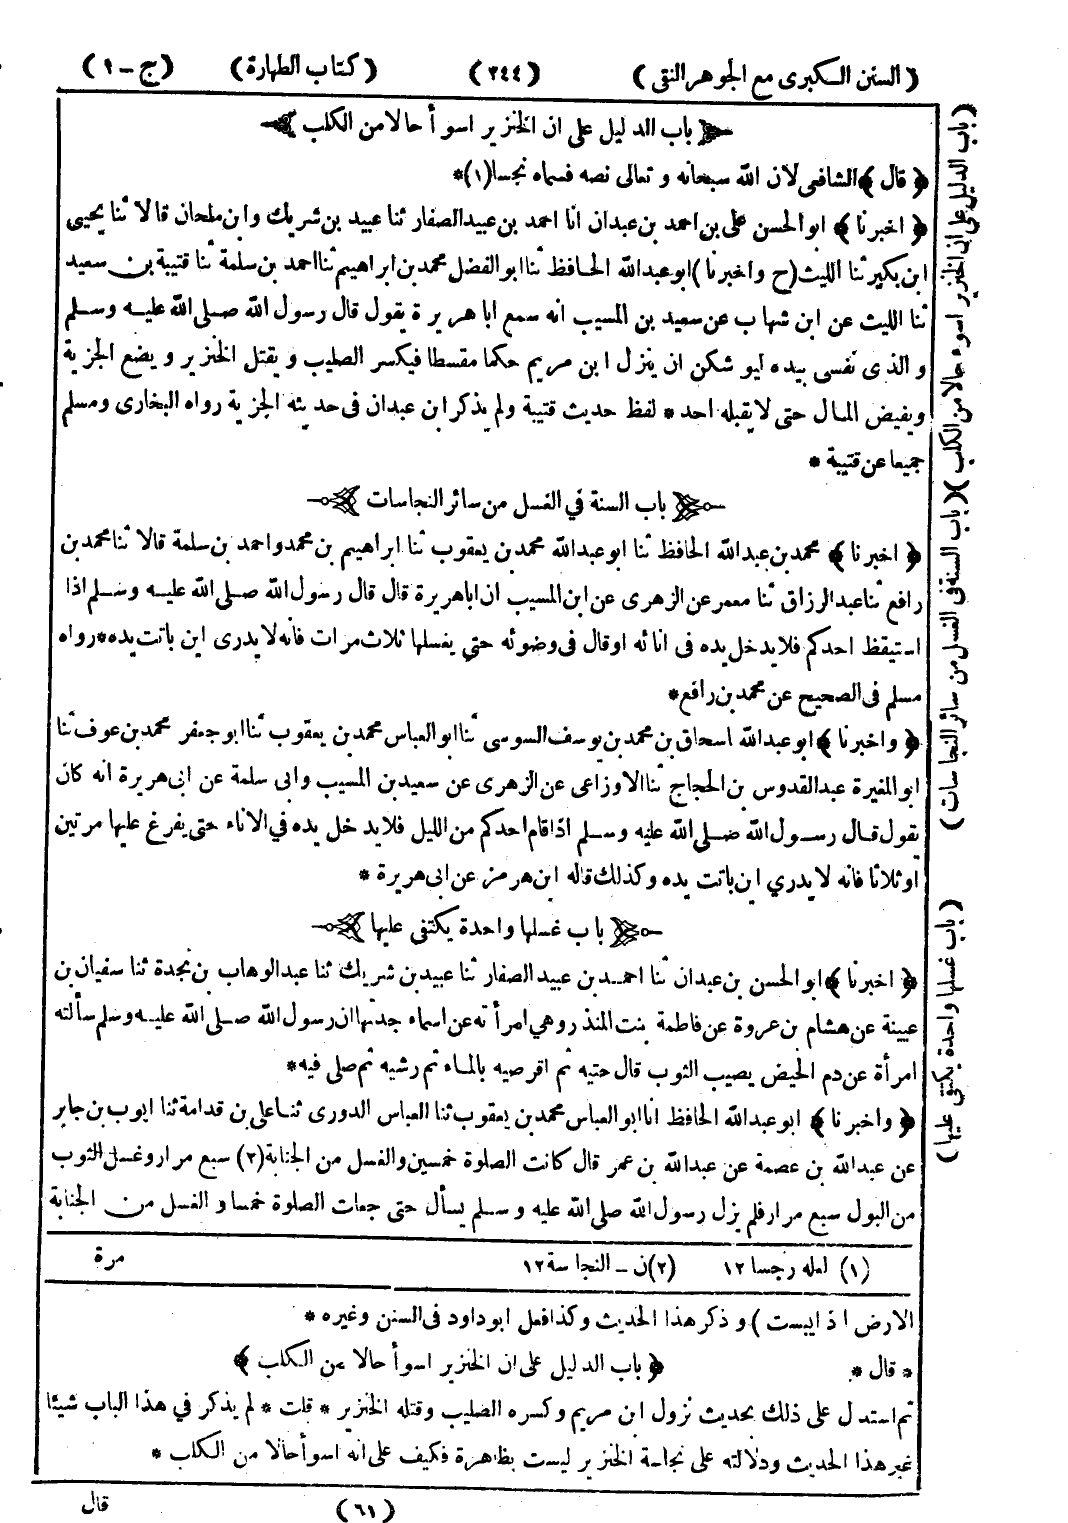 (السنن الكبرى مع الجوهر النقى) (٢٤٤) (كتاب الطهارة) (ج - ١)
باب الدليل على ان الخنزير اسوأ حالا من الكلب
﴿ قال ﴾ الشافعى لان الله سبحانه و تعالى نصه فسماه نجسا (١)*
﴿ اخبرنا ﴾ ابو الحسن على بن احمد بن عبدان انا احمد بن عبيد الصفار ثنا عبيد بن شريك وابن ملحان قالا ثنا يحيى
ابن بكير ثنا الليث (ح واخبرنا) ابو عبد الله الحافظ ثنا ابو الفضل محمد بن ابراهيم ثنا احمد بن سلمة ثنا قتيبة بن سعيد
ثنا الليث عن ابن شهاب عن سعيد بن المسيب انه سمع ابا هريرة يقول قال رسول الله صلى الله عليه وسلم
و الذى نفسى بيده ليوشكن ان ينزل ابن مريم حكما مقسطا فيكسر الصليب و يقتل الخنزير و يضع الجزية
ويفيض المال حتى لا يقبله احد * لفظ حديث قتيبة ولم يذكر ابن عبدان فى حديثه الجزية رواه البخارى ومسلم
جميعا عن قتيبة *
باب السنة في الغسل من سائر النجاسات
﴿ اخبرنا ﴾ محمد بن عبد الله الحافظ ثنا ابو عبد الله محمد بن يعقوب ثنا ابراهيم بن محمد واحمد بن سلمة قالا ثنا محمد بن
رافع ثنا عبد الرزاق ثنا معمر عن الزهرى عن ابن المسيب ان ابا هريرة قال قال رسول الله صلى الله عليه وسلم اذا
استيقظ احدكم فلا يدخل يده فى انائه اوقال فى وضوئه حتي يغسلها ثلاث مرات فانه لا يدرى اين باتت يده* رواه
مسلم فى الصحيح عن محمد بن رافع*
﴿ واخبرنا ﴾ ابو عبد الله اسحاق بن محمد بن يوسف السوسى ثنا ابو العباس محمد بن يعقوب ثنا ابو جعفر محمد بن عوف ثنا
ابو المغيرة عبد القدوس بن الحجاج ثنا الاوزاعى عن الزهرى عن سعيد بن المسيب وابى سلمة عن ابى هريرة انه كان
يقول قال رسول الله صلى الله عليه وسلم اذا قام احدكم من الليل فلا يدخل يده في الاناء حتى يفرغ عليها مرتين
او ثلاثا فانه لا يدري اين باتت يده وكذلك قاله ابن هرمز عن ابى هريرة *
باب غسلها واحدة يكتفى عليها
﴿ اخبرنا ﴾ ابو الحسن بن عبدان ثنا احمد بن عبيد الصفار ثنا عبيد بن شريك ثنا عبد الوهاب بن نجدة ثنا سفيان بن
عيينة عن هشام بن عروة عن فاطمة بنت المنذر وهي امرأته عن اسماء جدتها ان رسول الله صلى الله عليه وسلم سألته
امرأة عن دم الحيض يصيب الثوب قال حتيه ثم اقرصيه بالماء ثم رشيه ثم صلى فيه*
﴿ واخبرنا ﴾ ابو عبد الله الحافظ انا ابو العباس محمد بن يعقوب ثنا العباس الدورى ثنا على بن قدامة ثنا ايوب بن جابر
عن عبد الله بن عصمة عن عبد الله بن عمر قال كانت الصلوة خمسين والغسل من الجنابة (٢) سبع مرار وغسل الثوب
من البول سبع مرار فلم يزل رسول الله صلى الله عليه وسلم يسأل حتى جعلت الصلوة خمسا و الغسل من الجنابة
مرة
(١) لعله رجسا ١٢ (٢) ن - النجاسة ١٢
الارض اذا يبست) و ذكر هذا الحديث وكذا فعل ابو داود فى السنن وغيره *
* قال * ﴿ باب الدليل على ان الخنزير اسوأ حالا من الكلب ﴾
ثم استدل على ذلك بحديث نزول ابن مريم وكسره الصليب وقتله الخنزير * قلت * لم يذكر في هذا الباب شيئا
غير هذا الحديث ودلالته على نجاسة الخنزير ليست بظاهرة فكيف على انه اسوأ حالا من الكلب *
(٦١) قال
(باب الدليل على ان الخنزير اسوء حالا من الكلب) (باب السنة فى الغسل من سائر النجاسات)
(باب غسلها واحدة يكتفى عليها)